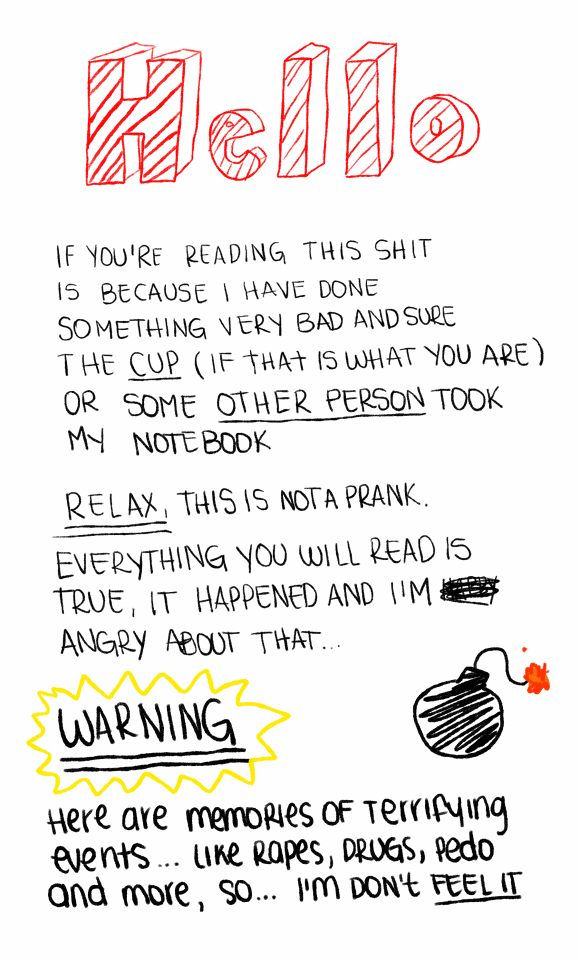 Hello
IF YOU'RE READING THIS SHIT
IS BECAUSE I HAVE DONE
SOMETHING VERY BAD AND SURE
THE CUP (IF THAT IS WHAT YOU ARE)
OR SOME OTHER PERSON TOOK
MY NOTEBOOK
RELAX, THIS IS NOT A PRANK.
EVERYTHING YOU WILL READ IS
TRUE, IT HAPPENED AND I'M
ANGRY ABOUT THAT...
WARNING
Here are memories of Terrifying
events... Like Rapes, DRUGS, Pedo
and more, so... I'M DON'T FEEL IT